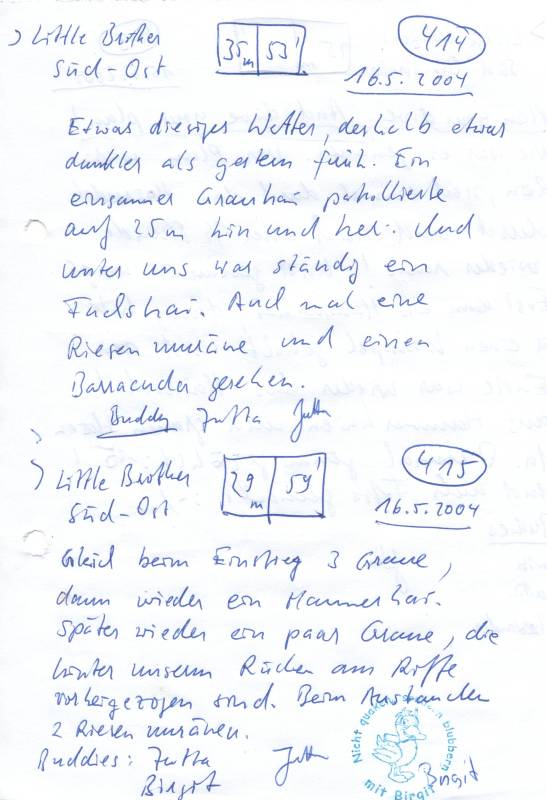 Little Brother
Süd-Ost
35m 53'
414
16.5.2004
Etwas diesiges Wetter, deshalb etwas
dunkler als gestern früh. Ein
einsamer Grauhai patrollierte
auf 25m hin und her. Und
unter uns war ständig ein
Fuchshai. Auch mal eine
Riesenmuräne und einen
Barracuda gesehen.
Buddy Jutta Jutta
Little Brother
Süd-Ost
29m 59'
415
16.5.2004
Gleich beim Einstieg 3 Graue,
dann wieder ein Hammerhai.
Später wieder ein paar Graue, die
hinter unserm Rücken am Riffe
vorbeigezogen sind. Beim Austauchen
2 Riesenmuränen.
Buddies: Jutta Jutta
Birgit Birgit
Nicht quatschen sondern blubbern
mit Birgit